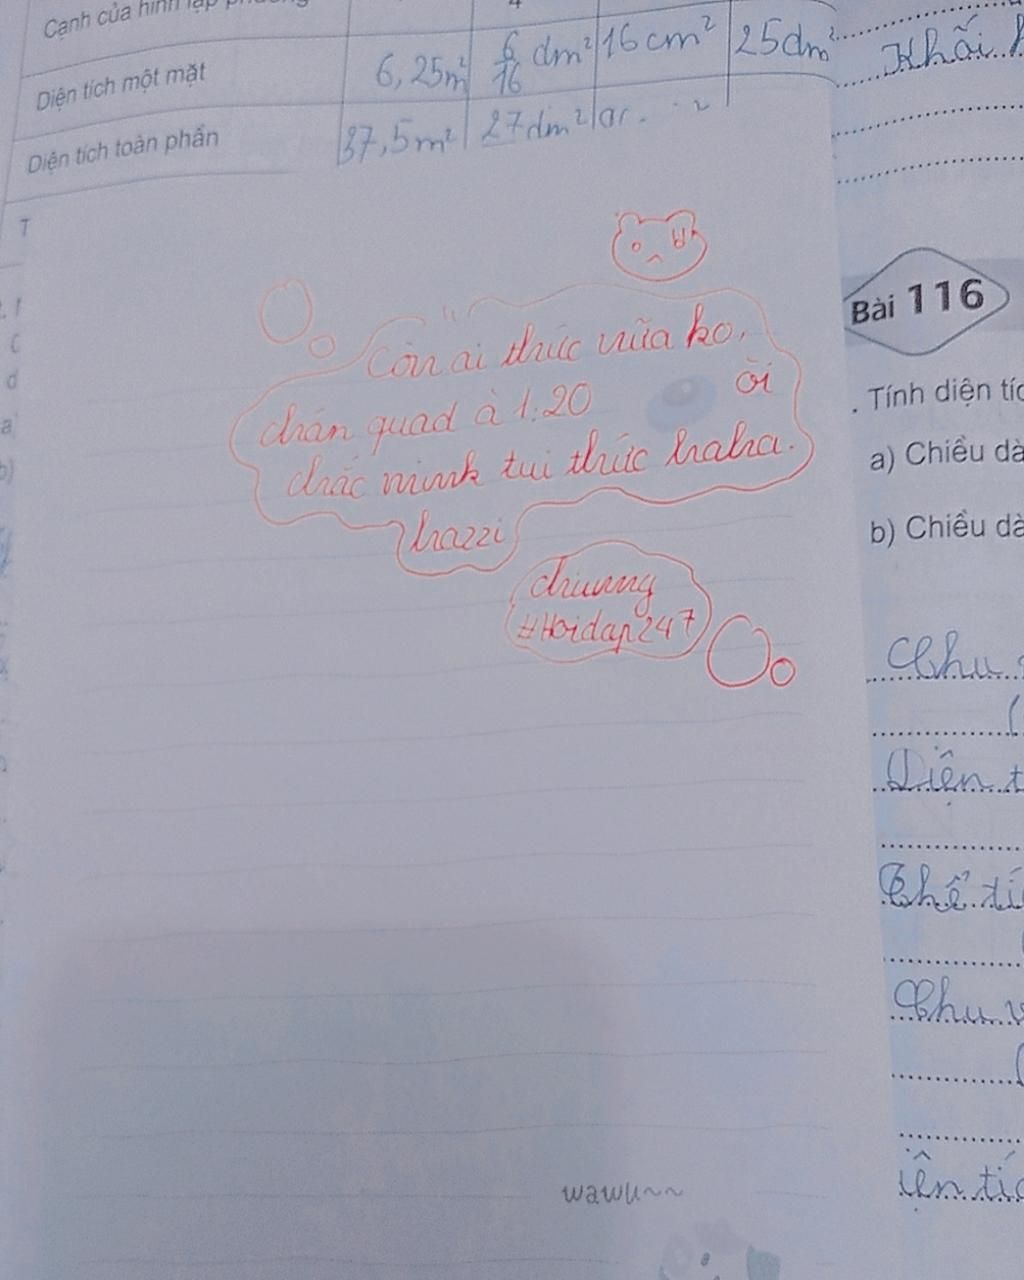 Cạnh của hình lập phương
Diện tích một mặt 6,25m² 6/16 dm² 16cm² 25dm²
Diện tích toàn phần 37,5m² 27dm²
Khối
T
Còn ai thức nữa ko,
ời
chán quad à 1:20
chắc mình tui thức haha.
hazzi
chiuung
#Hoidap247
Bài 116
. Tính diện tíc
a) Chiều dà
b) Chiều dà
Chu
Diện t
Thể tí
Chu v
iện tíc
wawu~~